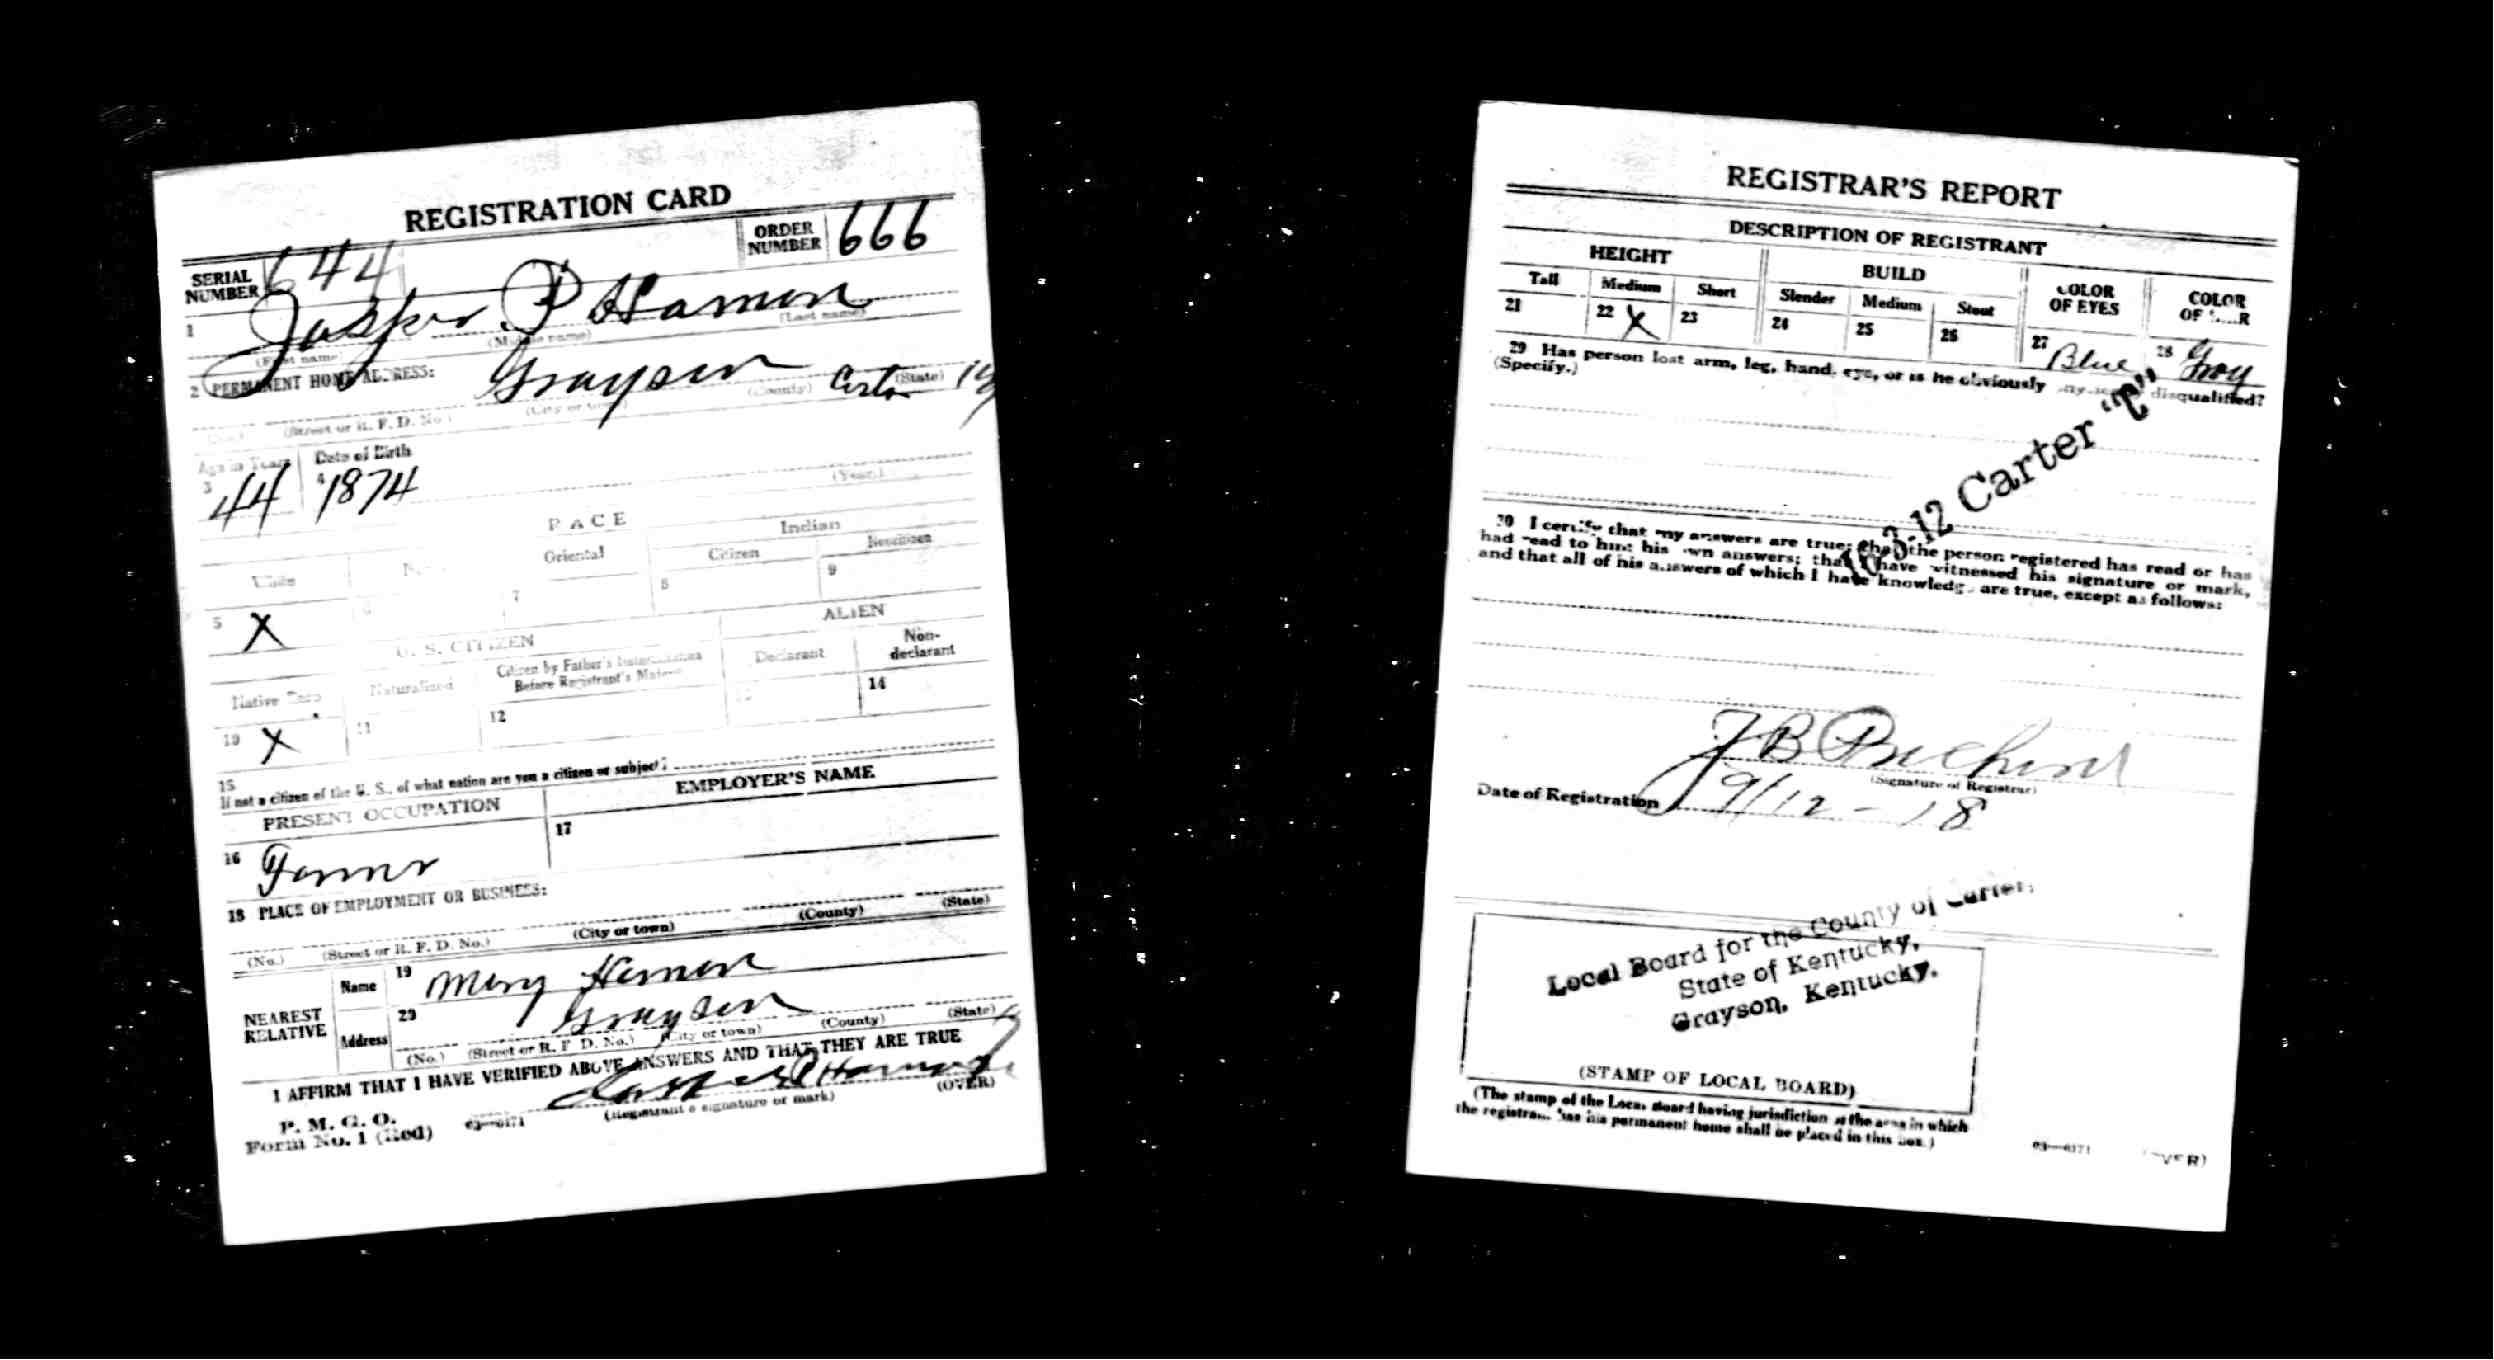 REGISTRATION CARD
SERIAL NUMBER 644
ORDER NUMBER 666
1 Jasper P Hamon
(First name) (Middle name) (Last name)
2 PERMANENT HOME ADDRESS: Grayson Carter Ky
(No.) (Street or R. F. D. No.) (City or town) (County) (State)
Age in Years Date of Birth
3 44 4 1874
(Year.)
RACE
White Oriental Indian
Citizen Noncitizen
5 X 7 8 9
U. S. CITIZEN ALIEN
Native Born Naturalized Citizen by Father's Naturalization Before Registrant's Declarant Non-declarant
10 X 11 12 14
15
If not a citizen of the U. S., of what nation are you a citizen or subject?
PRESENT OCCUPATION EMPLOYER'S NAME
16 Farmer 17
18 PLACE OF EMPLOYMENT OR BUSINESS:
(No.) (Street or R. F. D. No.) (City or town) (County) (State)
NEAREST RELATIVE
Name 19 Mary Hamon
Address 20 Grayson
(No.) (Street or R. F. D. No.) (City or town) (County) (State)
I AFFIRM THAT I HAVE VERIFIED ABOVE ANSWERS AND THAT THEY ARE TRUE
P. M. G. O.
Form No. 1 (Red) 03—6171 (Registrant's signature or mark) (OVER)
REGISTRAR'S REPORT
DESCRIPTION OF REGISTRANT
HEIGHT BUILD COLOR OF EYES COLOR OF
Tall Medium Short Slender Medium Stout
21 22 X 23 24 25 26 27 Blue 28 Gray
29 Has person lost arm, leg, hand, eye, or is he obviously disqualified?
(Specify.)
12 Carter "C"
30 I certify that my answers are true; that the person registered has read or has
had read to him his own answers; that I have witnessed his signature or mark,
and that all of his answers of which I have knowledge are true, except as follows:
J B
(Signature of Registrar)
Date of Registration 9/12-18
Local Board for the County of Carter,
State of Kentucky,
Grayson, Kentucky.
(STAMP OF LOCAL BOARD)
(The stamp of the Local Board having jurisdiction of the area in which
the registrant has his permanent home shall be placed in this box.)
03—6171 (OVER)